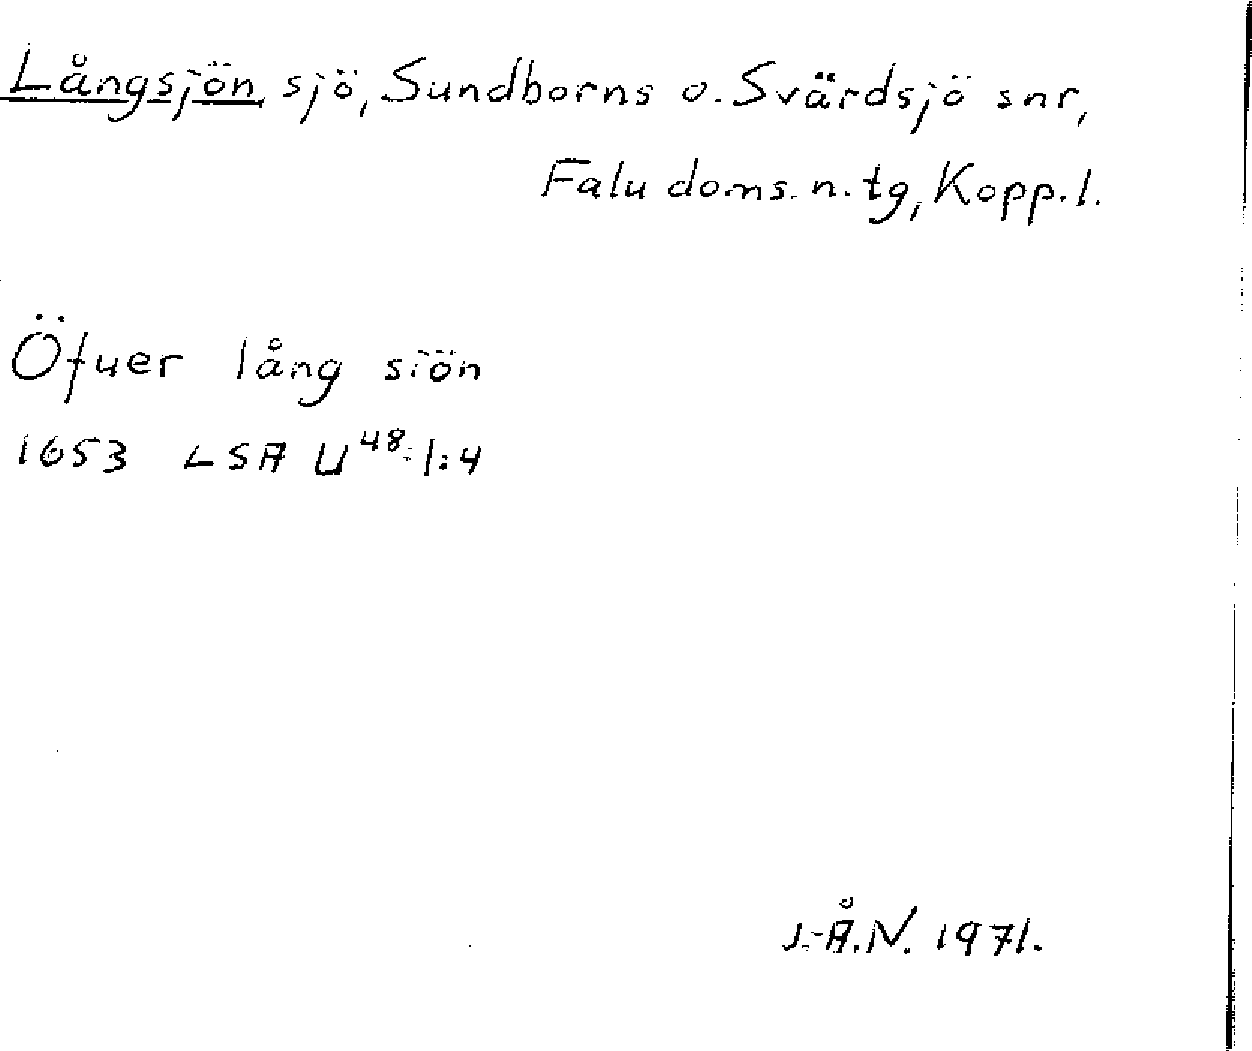 Långsjön sjö, Sundborns o. Svärdsjö snr,
Falu doms. n. tg, Kopp. l.
Öfuer lång siön
1653 LSA U48:1:4
J.-Å.N. 1971.